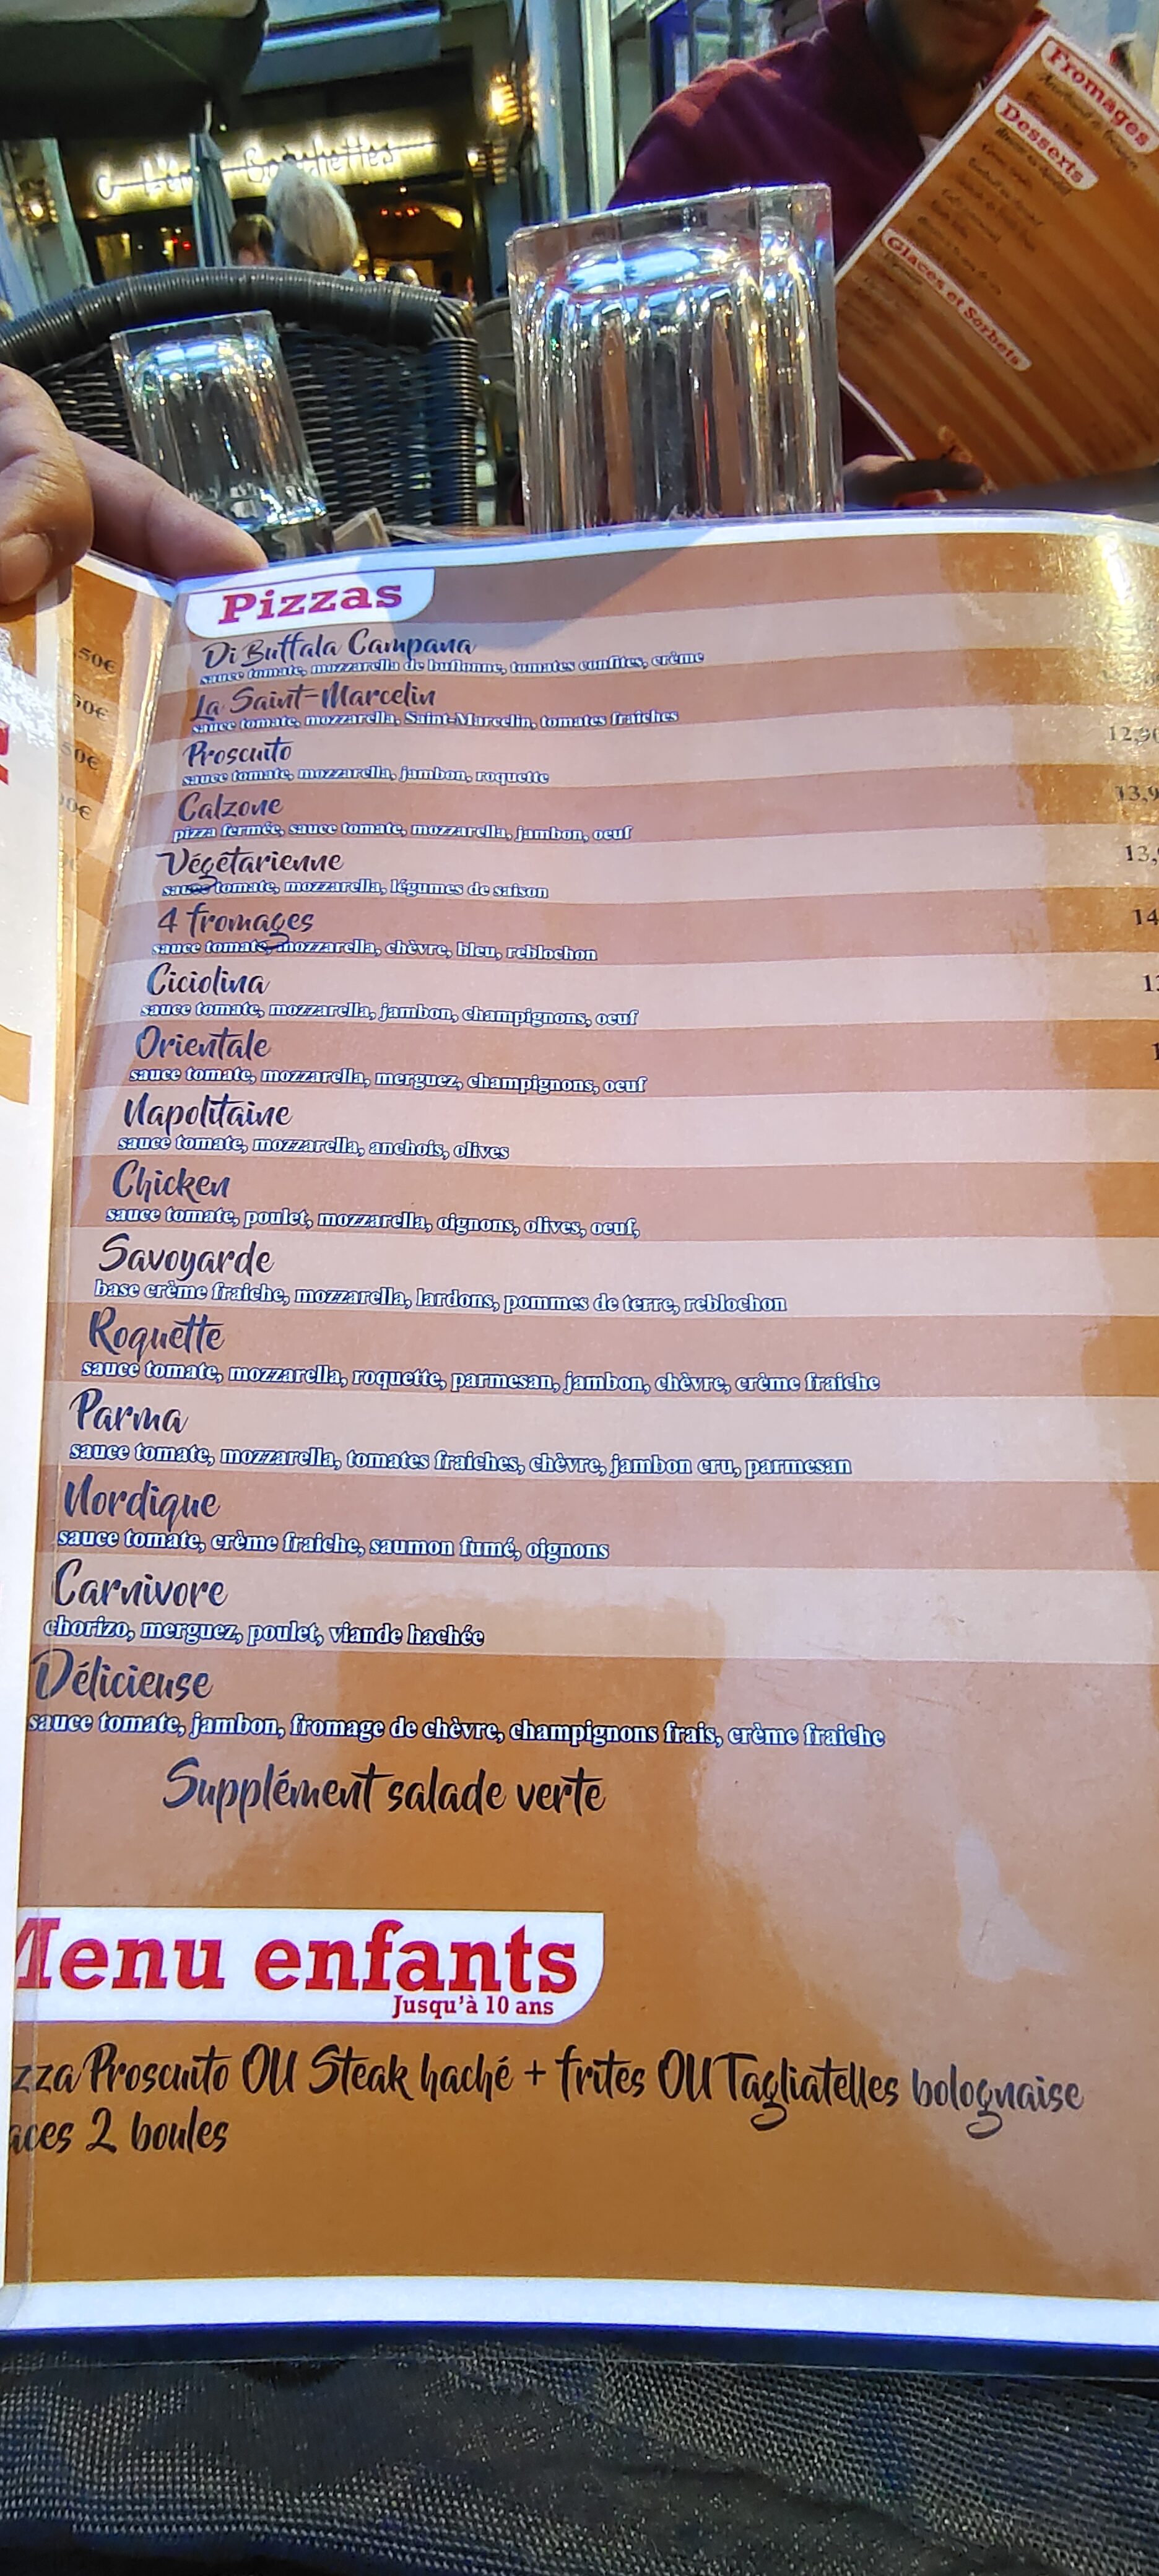 Fromages
Desserts
Glaces et Sorbets
Pizzas
Di Buffala Campana
sauce tomate, mozzarella de buflonne, tomates confites, crème
La Saint-Marcelin
sauce tomate, mozzarella, Saint-Marcelin, tomates fraîches
Proscuito
sauce tomate, mozzarella, jambon, roquette
12,90
Calzone
pizza fermée, sauce tomate, mozzarella, jambon, oeuf
13,9
Végétarienne
sauce tomate, mozzarella, légumes de saison
13,
4 fromages
sauce tomate, mozzarella, chèvre, bleu, reblochon
14
Ciciolina
sauce tomate, mozzarella, jambon, champignons, oeuf
Orientale
sauce tomate, mozzarella, merguez, champignons, oeuf
Napolitaine
sauce tomate, mozzarella, anchois, olives
Chicken
sauce tomate, poulet, mozzarella, oignons, olives, oeuf,
Savoyarde
base crème fraiche, mozzarella, lardons, pommes de terre, reblochon
Roquette
sauce tomate, mozzarella, roquette, parmesan, jambon, chèvre, crème fraiche
Parma
sauce tomate, mozzarella, tomates fraiches, chèvre, jambon cru, parmesan
Nordique
sauce tomate, crème fraiche, saumon fumé, oignons
Carnivore
chorizo, merguez, poulet, viande hachée
Délicieuse
sauce tomate, jambon, fromage de chèvre, champignons frais, crème fraiche
Supplément salade verte
Menu enfants
Jusqu'à 10 ans
zza Proscuito OU Steak haché + frites OU Tagliatelles bolognaise
aces 2 boules